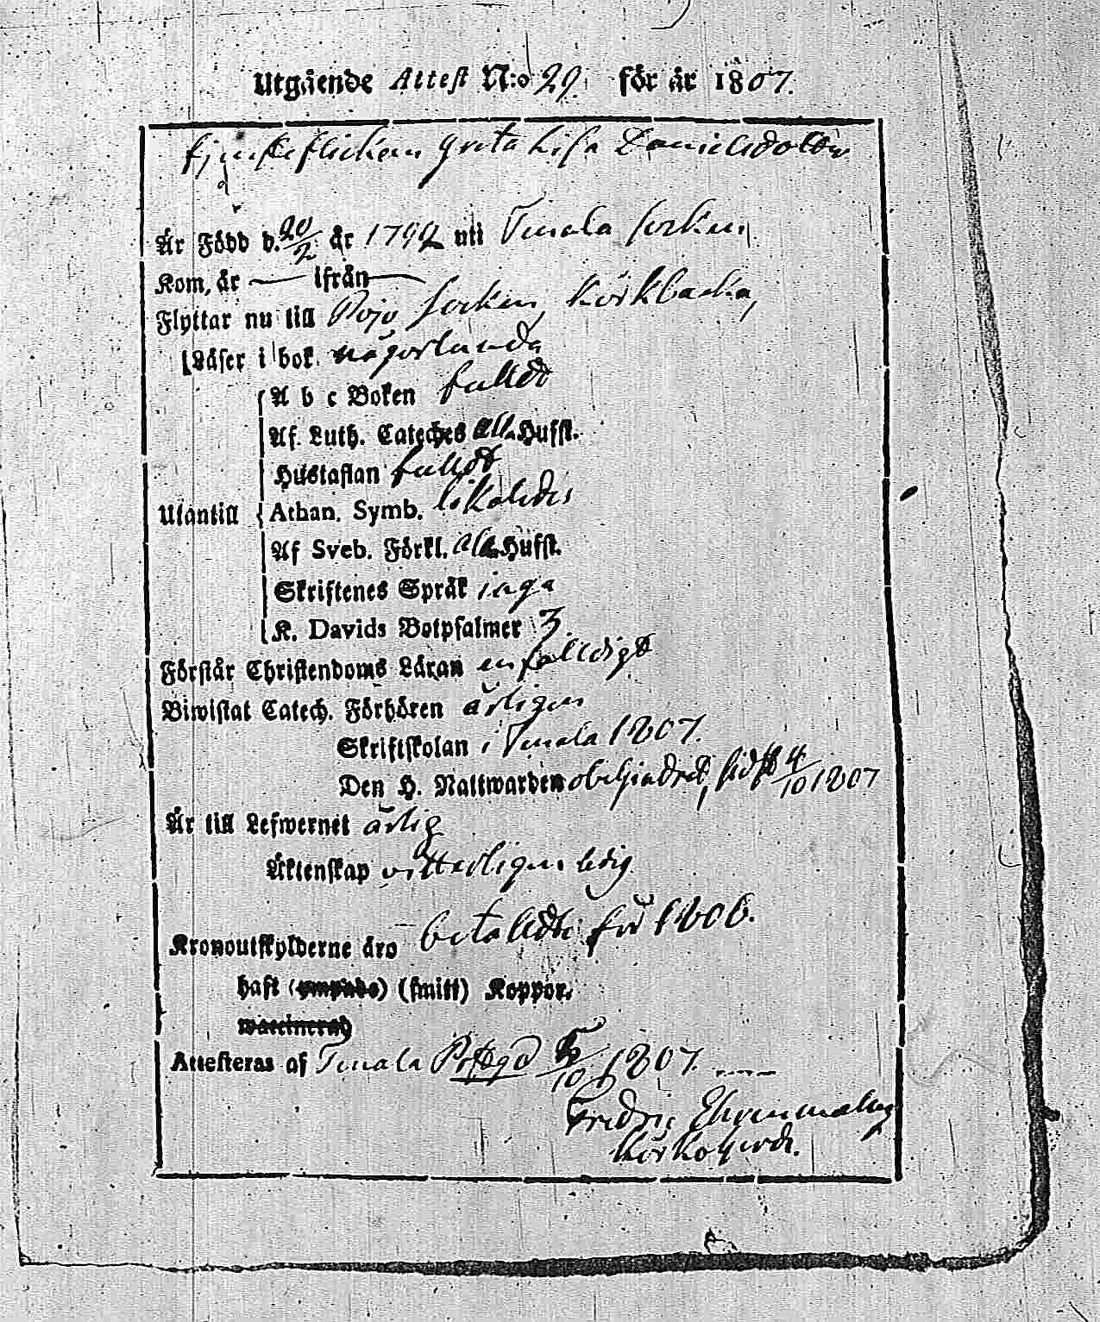 Utgående Attest N:o 29. för år 1807.
tjensteflickan Greta Lisa Danielsdotter
Är Född d. 20/2 år 1792 uti Tenala socken
Kom, år — ifrån —
Flyttar nu till Pojo socken, Körkbacka,
Läser i bok. någorlunda
A b c Boken fulldt
Af. Luth. Cateches alla Hufst.
Hustaflan fulldt
Utantill Athan. Symb. likaledes
Af Sveb. Förkl. alla Hufst.
Skriftenes Språk inga
K. Davids Botpsalmer 3.
Förstår Christendoms Läran enfaldigt
Biwistat Catech. Förhören årligen
Skriftskolan i Tenala 1807.
Den H. Nattwarden obehindradt, sidst 4/10 1807
Är till Lefwernet ärlig
Äktenskap vitterligen ledig
Kronoutskylderne äro betaldte för 1806.
haft (ympade) (smitt) Koppor.
waccinerad
Attesteras af Tenala Prstgd 5/10 1807.
Fredric Ehrnmalm
Körkoherde.